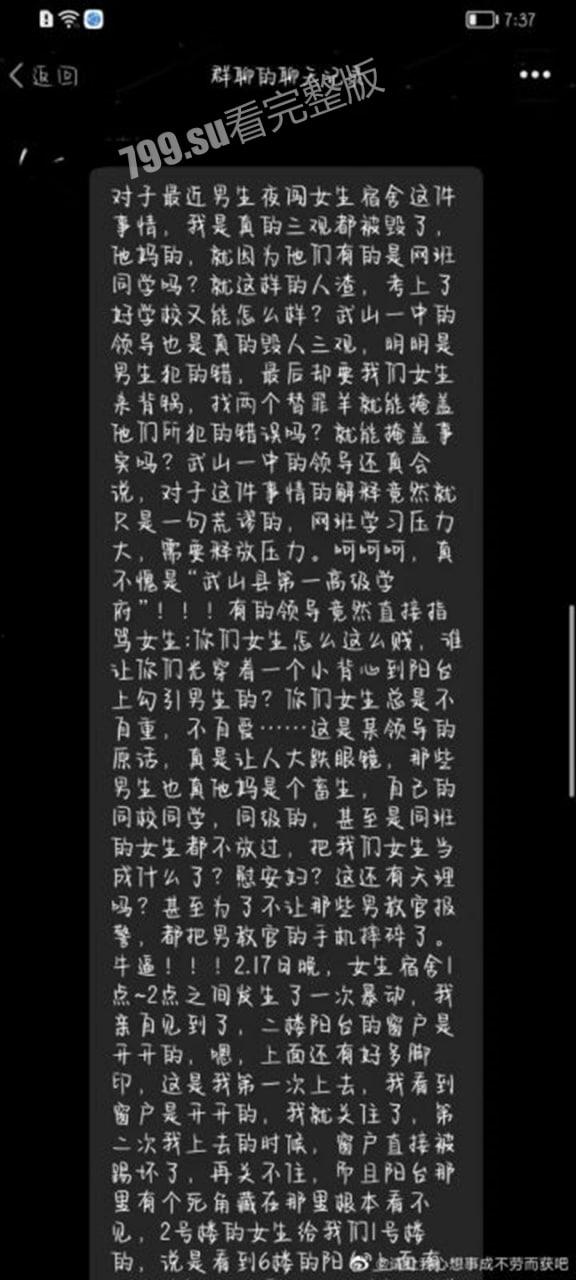 7:37
返回
群聊的聊天记录
799.su看完整版
对于最近男生夜闯女生宿舍这件
事情，我是真的三观都被毁了，
他妈的，就因为他们有的是网班
同学吗？就这样的人渣，考上了
好学校又能怎么样？武山一中的
领导也是真的毁人三观，明明是
男生犯的错，最后却要我们女生
来背锅，找两个替罪羊就能掩盖
他们所犯的错误吗？就能掩盖事
实吗？武山一中的领导还真会
说，对于这件事情的解释竟然就
只是一句荒谬的，网班学习压力
大，需要释放压力。呵呵呵，真
不愧是“武山县第一高级学
府”！！！有的领导竟然直接指
骂女生:你们女生怎么这么贱，谁
让你们光穿着一个小背心到阳台
上勾引男生的？你们女生总是不
自重，不自爱……这是某领导的
原话，真是让人大跌眼镜，那些
男生也真他妈是个畜生，自己的
同校同学，同级的，甚至是同班
的女生都不放过，把我们女生当
成什么了？慰安妇？这还有天理
吗？甚至为了不让那些男教官报
警，都把男教官的手机摔碎了。
牛逼！！！2.17日晚，女生宿舍1
点~2点之间发生了一次暴动，我
亲自见到了，二楼阳台的窗户是
开开的，嗯，上面还有好多脚
印，这是我第一次上去，我看到
窗户是开开的，我就关住了，第
二次我上去的时候，窗户直接被
踢坏了，再关不住，而且阳台那
里有个死角藏在那里根本看不
见，2号楼的女生给我们1号楼
的，说是看到6楼的阳台上面有
心想事成不劳而获吧